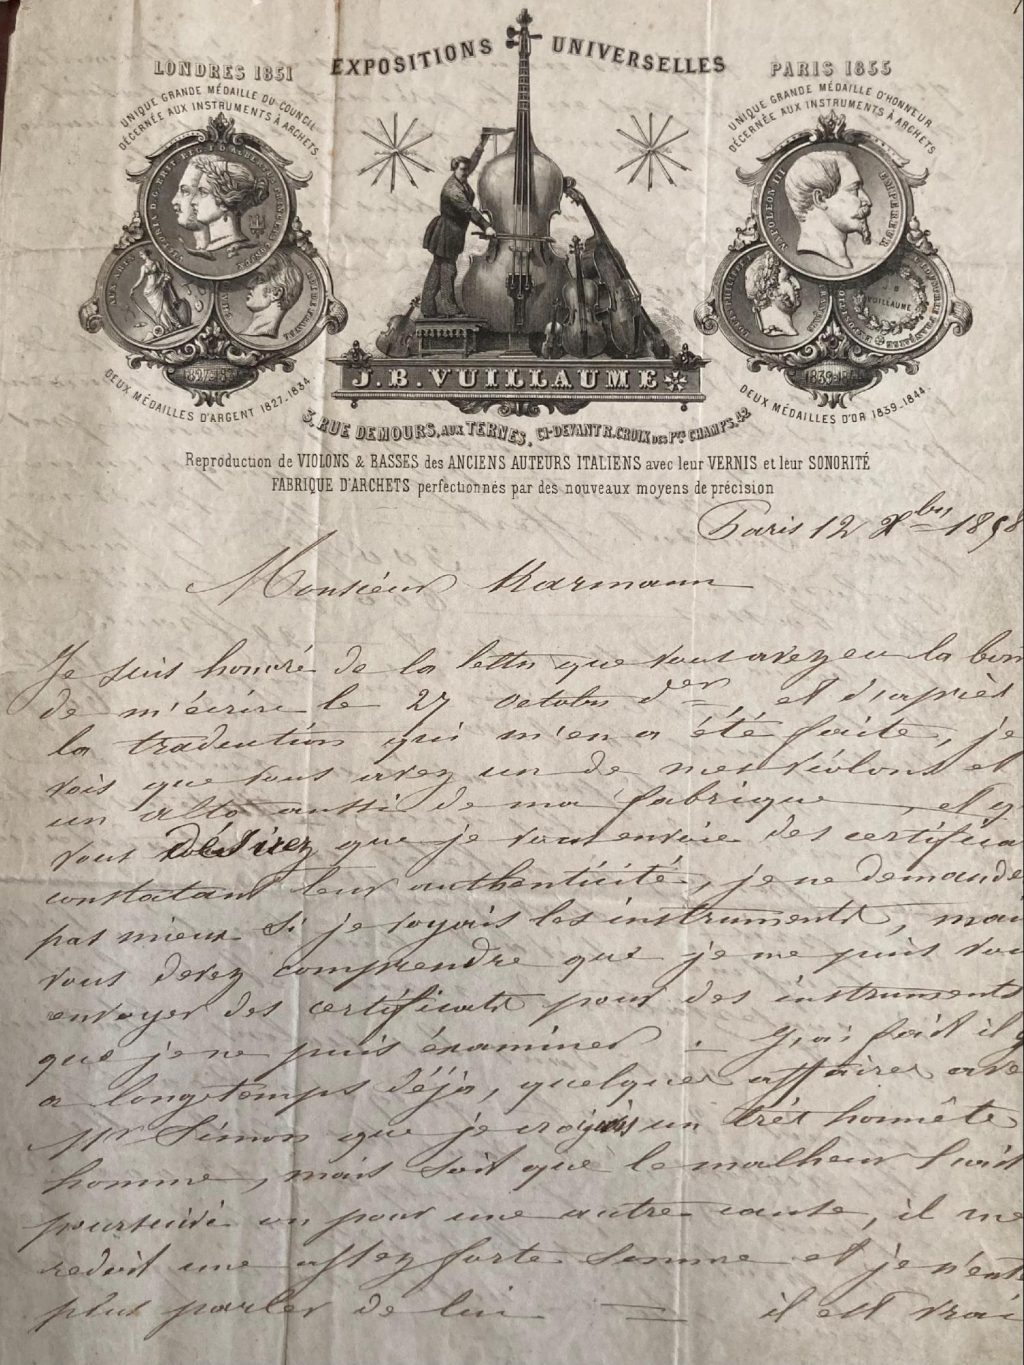 EXPOSITIONS UNIVERSELLES
LONDRES 1851
UNIQUE GRANDE MÉDAILLE DU COUNCIL
DÉCERNÉE AUX INSTRUMENTS À ARCHETS
PARIS 1855
UNIQUE GRANDE MÉDAILLE D'HONNEUR
DÉCERNÉE AUX INSTRUMENTS À ARCHETS
NAPOLEON III EMPEREUR
J B
VUILLAUME
1827-1834
1839-1844
DEUX MÉDAILLES D'ARGENT 1827-1834
DEUX MÉDAILLES D'OR 1839-1844.
J. B. VUILLAUME
3, RUE DEMOURS, AUX TERNES, CI-DEVANT R. CROIX DES Pts CHAMPS, 42
Reproduction de VIOLONS & BASSES des ANCIENS AUTEURS ITALIENS avec leur VERNIS et leur SONORITÉ
FABRIQUE D'ARCHETS perfectionnés par des nouveaux moyens de précision
Paris 12 Xbre 1858
Monsieur
Je suis honoré de la lettre que vous avez eu la bon
de m'écrire le 27 octobre der, et d'après
la traduction qui m'en a été faite, je
vois que vous avez un de mes violons et
un alto aussi de ma fabrique, et q
vous désirez que je vous envoie des certifica
constatant leur authenticité, je ne demande
pas mieux si je voyais les instruments, mai
vous devez comprendre que je ne puis vou
envoyer des certificats pour des instruments
que je ne puis examiner. J'ai fait il y
a longtemps déjà, quelques affaires ave
Mr Simon que je croyais un très honnête
homme, mais soit que le malheur l'ait
poursuivi ou pour une autre cause, il me
redoit une assez forte somme et je n'ent
plus parler de lui = il est vrai